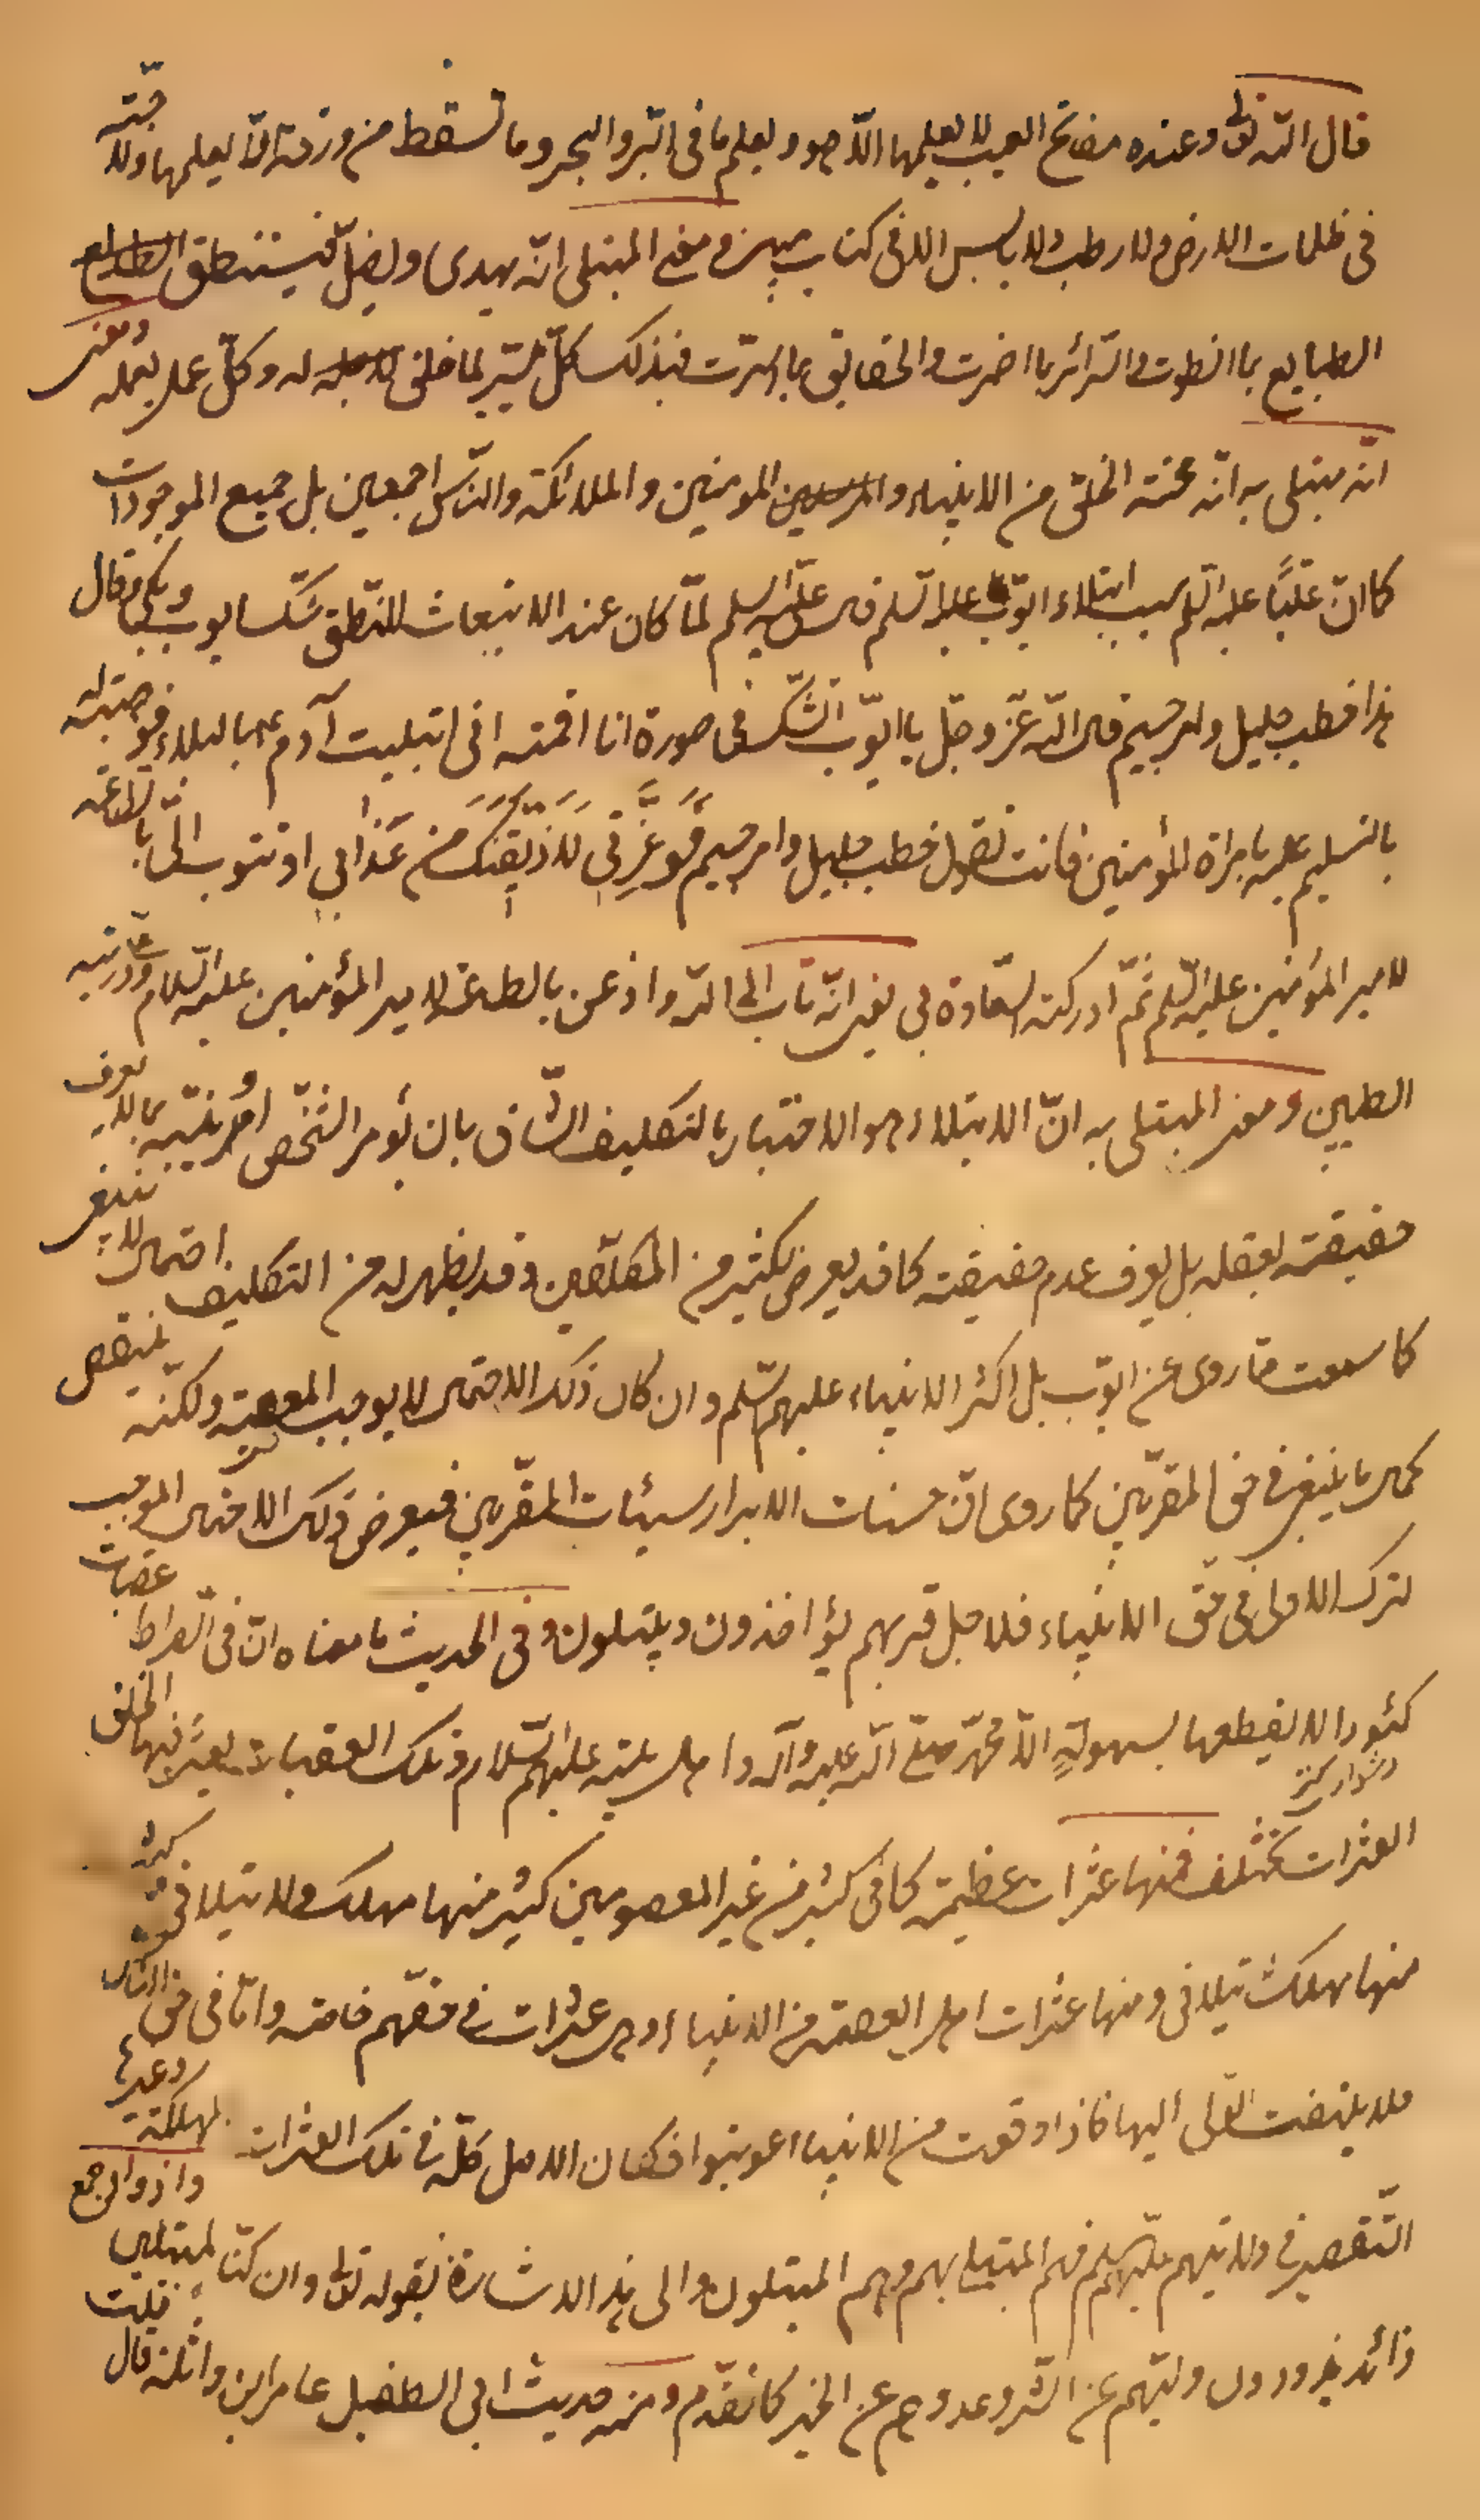 قال الله تعالى وعنده مفاتح الغيب لا يعلمها الا هو ويعلم ما فى البر والبحر وما تسقط من ورقة الا يعلمها ولا حبّة
فى ظلمات الارض ولا رطب ولا يابس الا فى كتاب مبين ومعنى المبتلى انّه يهدى ويضلّ فيستنطق الطبايع
الطبايع بما انطوت والسّرائر بما اضمرت والحقايق بما اسرّت فبذلك كلّ ميسّر لما خلق له وكلّ عمل بعمله ومعنى
انّه مبتلى به انّه محنة الخلق من الانبياء والمرسلين المومنين والملائكة والنّاس اجمعين بل جميع الموجودات
كما انّ عليًّا عليه السّلم سبب ابتلاء ايّوب عليه السّلم قال علىّ عليه السلم لمّا كان عند الانبعاث للنّطق شكّ ايوب وبكى وقال
هذا خطب جليل وامر جسيم قال الله عزّ وجلّ يا ايّوب اتشكّ فى صورة انا اقمته انى ابتليت آدم ع بالبلاء فوهبته له
بالتسليم عليه بامرة المؤمنين فانت تقول خطب جليل وامر جسيم فَوَعِزَّتى لَاُذيقَنَّكَ من عَذابى او تتوب الىّ بالطّاعة
لامير المؤمنين عليه السّلم ثمّ ادركته السّعادة بى يعنى انّه تاب الى الله واذعن بالطاعة لامير المؤمنين عليه السّلام وذريّته
الطيبين ومعنى المبتلى به انّ الابتلاء هو الاختبار بالتكليف الشّاق بان يؤمر الشّخص او يُنبّه بما لا يعرف
حقيقته بعقله بل يعرف عدم حقيقته كما قد يعرض لكثير من المكلّفين وقد يظهر له من التكليف احتمال لا ينبغى
كما سمعت ممّا روى عن ايّوب بل اكثر الانبياء عليهم السّلم وان كان ذلك الاحتمال لا يوجب المعصية ولكنّه ينقص
كمال ما ينبغى فى حق المقرّبين كما روى انّ حسنات الابرار سيئات المقرّبين فيعرض ذلك الاحتمال الموجب
لترك الاولى فى حقّ الانبياء فلاجل قربهم يؤاخذون ويبتلون وفى الحديث ما معناه انّ فى الصّراط عقبات
كئودا لا يقطعها بسهولةٍ الّا محمّد صلّى الله عليه وآله واهل بيته عليهم السّلام وتلك العقبات يعثر فيها الخلق
دشوار كننده
العثرات تختلف فمنها عثرات عظيمة كما فى كثير من غير المعصومين كثير منها مهلك ولا يتلافى وكثير
منها مهلك يتلافى ومنها عثرات اهل العصمة من الانبياء وهى عثرات فى حقّهم خاصّة وامّا فى حق النّاس
فلا يلتفت الى اليها فاذا وقعت من الانبياء عوتبوا فكان الاصل كلّه فى تلك العثرات المهلكة وغيرها
التّقصير فى ولايتهم عليهم السّلم فهم المبتلى بهم وهم المبتلون والى هذا الاشارة بقوله تعالى وان كنّا لمبتلين واذواد جمع
ذائد يذودون وليّهم عن الشّر وعدوهم عن الخير كما تقدّم ومنه حديث ابى الطفيل عامر ابن واثلة قال قلت